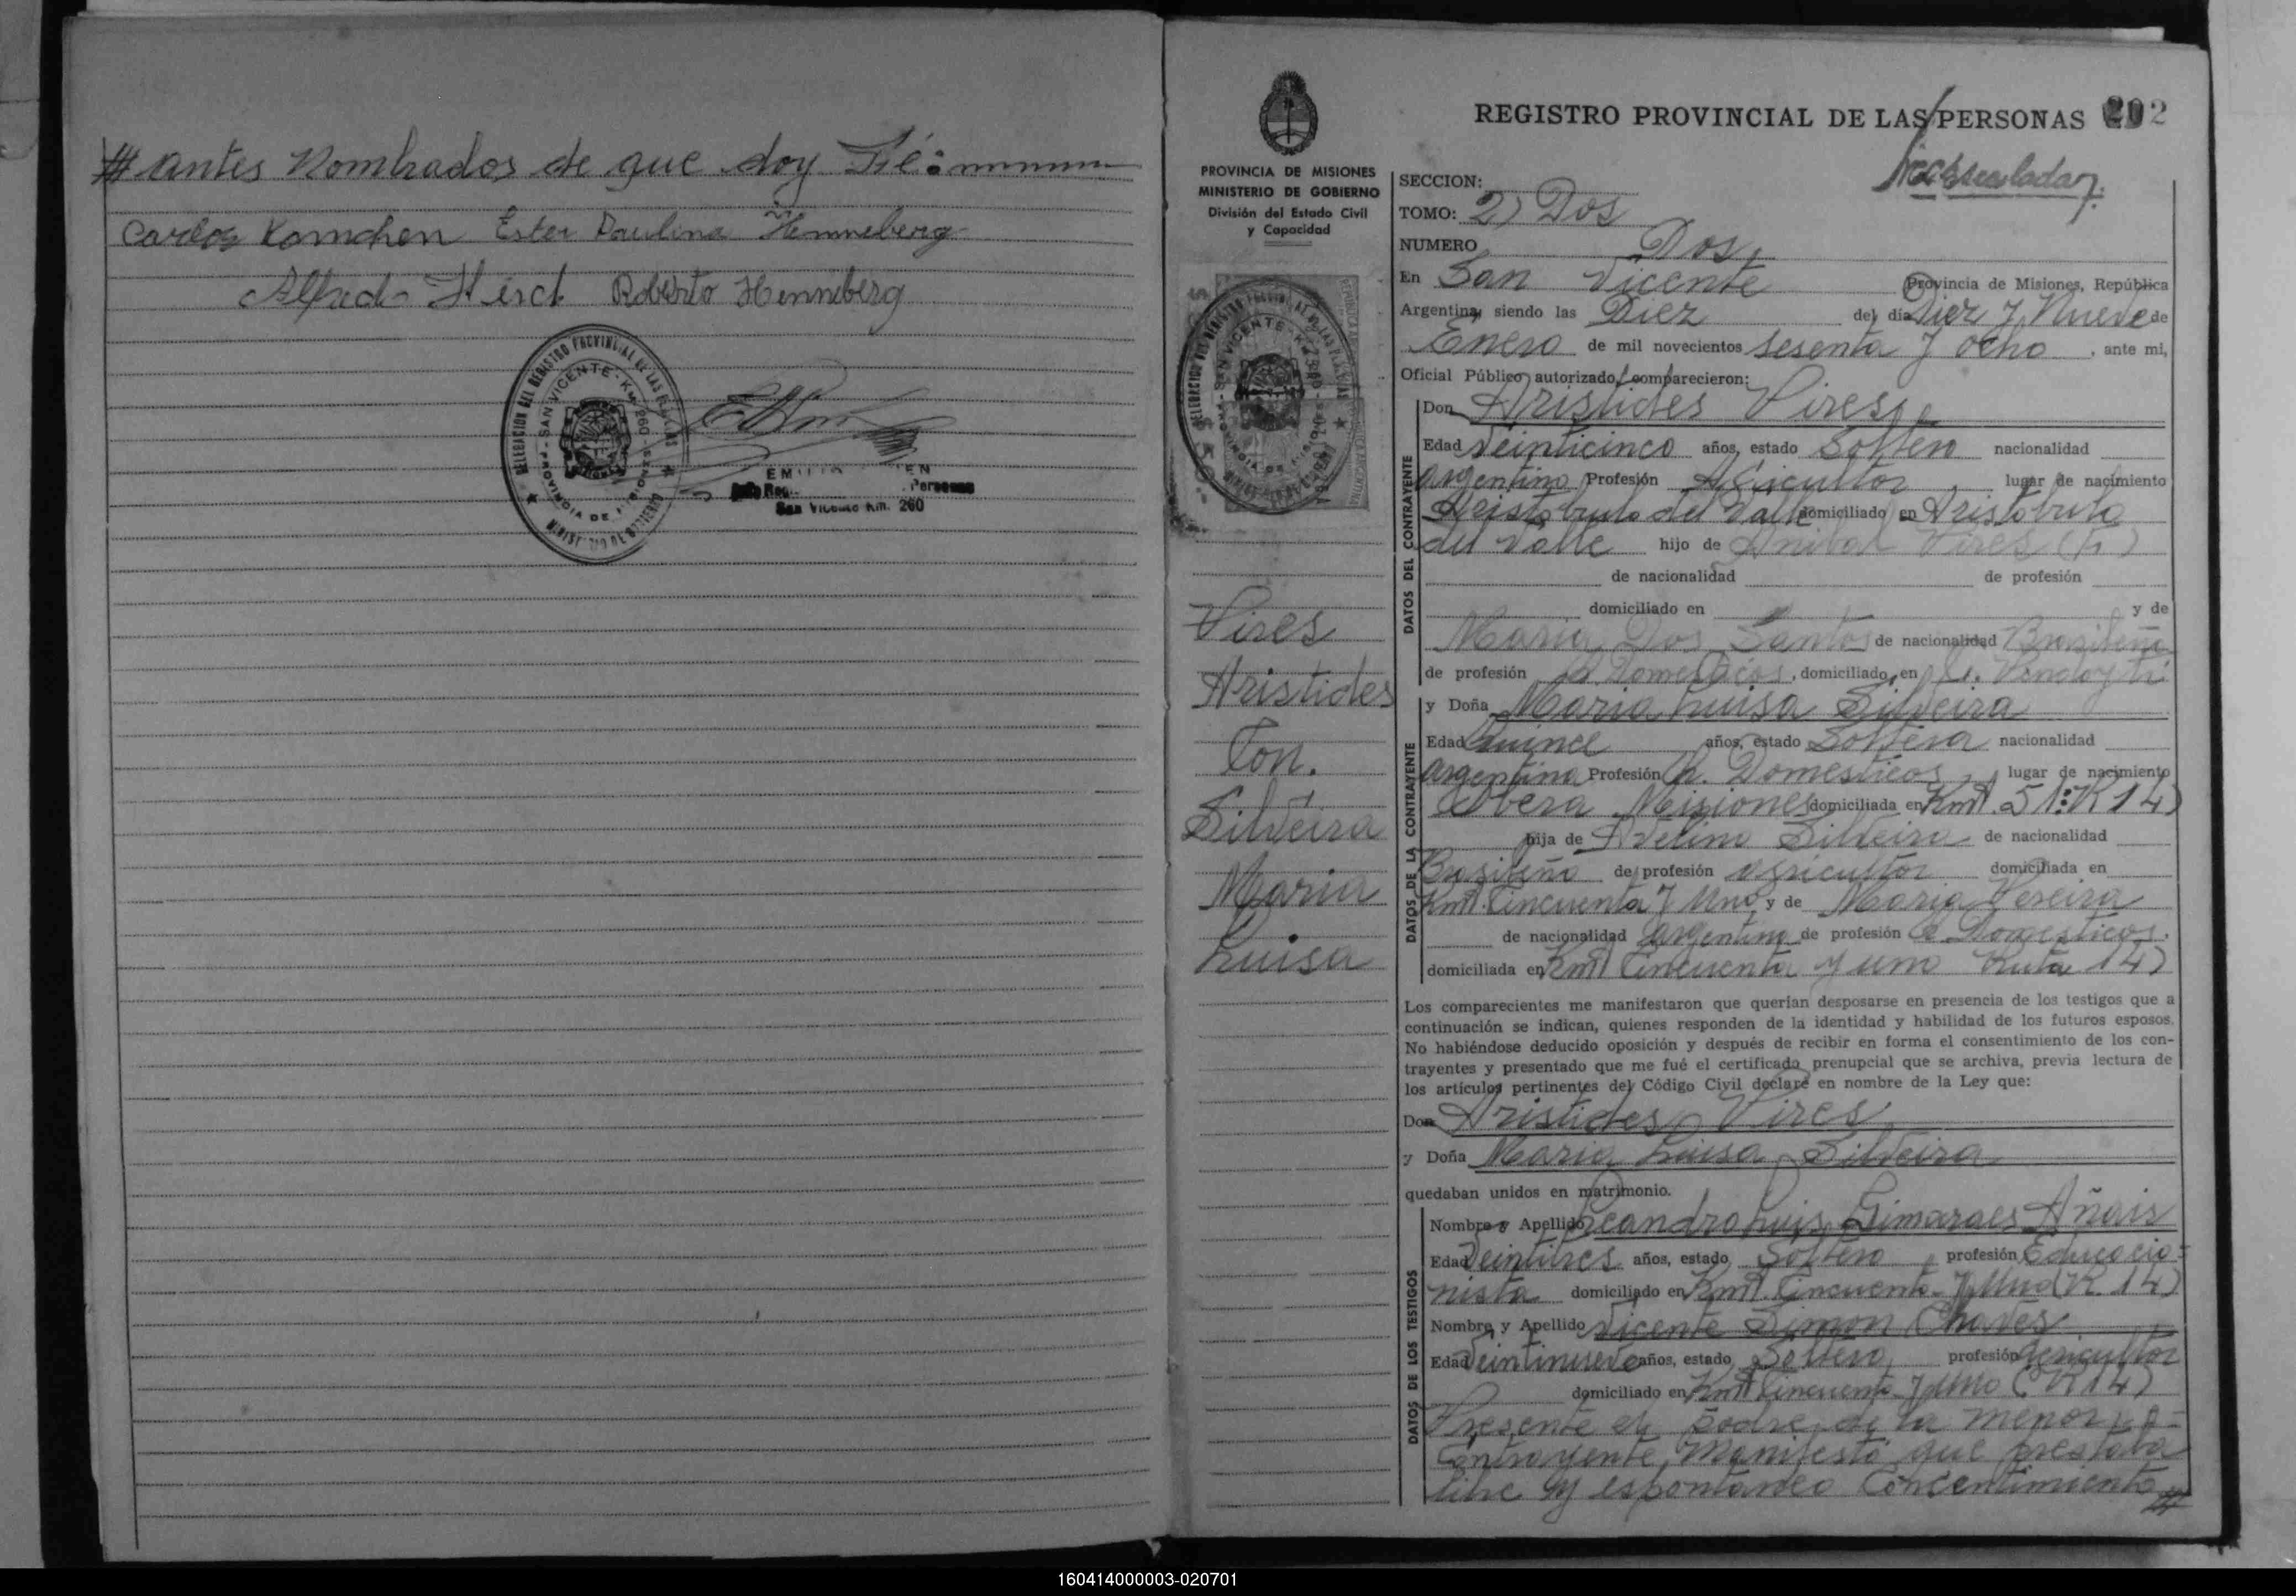 # antes Nombrados de que doy Fé:
Carlos Komchen Ester Paulina Henneberg
Alfredo Roberto Henneberg
DELEGACION DEL REGISTRO PROVINCIAL DE LAS PERSONAS
SAN VICENTE - Km 260
MINISTERIO DE GOBIERNO
San Vicente Km. 260
PROVINCIA DE MISIONES
MINISTERIO DE GOBIERNO
División del Estado Civil
y Capacidad
Vires
Aristides
Con.
Silveira
Maria
Luisa
REGISTRO PROVINCIAL DE LAS PERSONAS 202
SECCION:
TOMO: 2) Dos
NUMERO Dos,
En San Vicente Provincia de Misiones, República
Argentina, siendo las Diez del día Diez y Nueve de
Enero de mil novecientos sesenta y ocho , ante mi,
Oficial Público autorizado, comparecieron:
DATOS DEL CONTRAYENTE
Don Aristides Vires
Edad Veinticinco años, estado Soltero nacionalidad
argentino Profesión Agricultor lugar de nacimiento
Aristobulo del Valle domiciliado en Aristobulo
del Valle hijo de Anibal Vires (F)
de nacionalidad de profesión
domiciliado en y de
Maria Dos Santos de nacionalidad Brasileña
de profesión Q. Domesticos, domiciliado en
DATOS DE LA CONTRAYENTE
y Doña Maria Luisa Silveira
Edad Quince años, estado Soltera nacionalidad
argentina Profesión Q. Domesticos lugar de nacimiento
Obera Misiones domiciliada en Kmt. 51: R 14)
hija de Avelino Silveira de nacionalidad
Brasileño de profesión agricultor domiciliada en
Kmt. Cincuenta y Uno y de Maria Pereira
de nacionalidad argentina de profesión Q Domesticos.
domiciliada en Kmt Cincuenta y uno Ruta 14)
Los comparecientes me manifestaron que querían desposarse en presencia de los testigos que a
continuación se indican, quienes responden de la identidad y habilidad de los futuros esposos.
No habiéndose deducido oposición y después de recibir en forma el consentimiento de los con-
trayentes y presentado que me fué el certificado prenupcial que se archiva, previa lectura de
los artículos pertinentes del Código Civil declaré en nombre de la Ley que:
Don Aristides Vires
y Doña Maria Luisa Silveira
quedaban unidos en matrimonio.
DATOS DE LOS TESTIGOS
Nombre y Apellido Leandro Luis Gimaraes Añais
Edad Veintitres años, estado Soltero profesión Educacio=
nista domiciliado en Kmt. Cincuenta y Uno (R. 14)
Nombre y Apellido Vicente Simon Chaves
Edad Veintinueve años, estado Soltero profesión agricultor
domiciliado en Kmt Cincuenta y Uno (R 14)
Presente el padre de la menor
Contrayente, Manifestó que prestaba
libre y espontaneo Concentimiento #
160414000003-020701